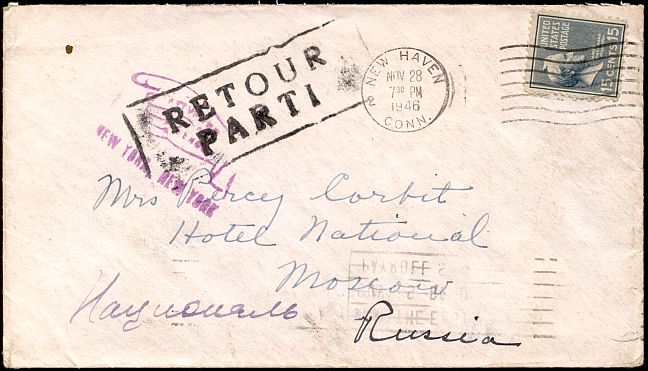 RETOUR
PARTI
NEW HAVEN
NOV 28
7 30 PM
1946
2
CONN.
UNITED
STATES
POSTAGE
15 CENTS 15
NEW YORK NEW YORK
Mrs Percy Corbit
Hotel National
Moscow
Националь
Russia